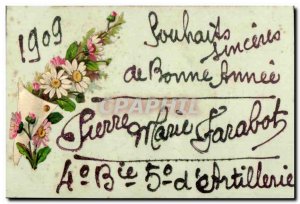 1909
Souhaits
Sincères
de Bonne Année
CPAPHIL
Pierre Marie Farabot
4º Bie 5º d'Artillerie